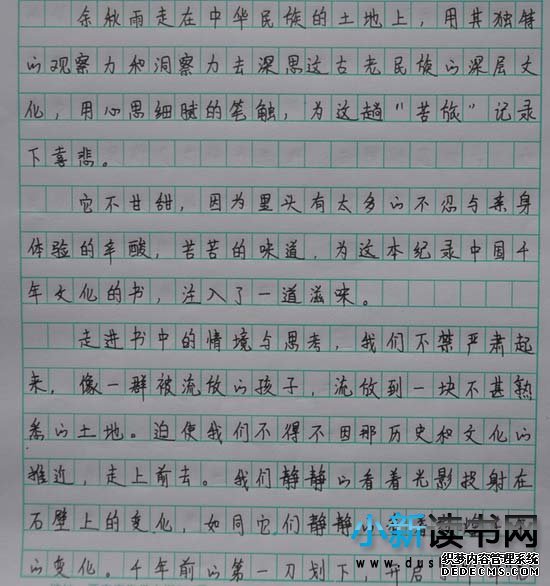 余秋雨走在中华民族的土地上，用其独特
的观察力和洞察力去深思这古老民族的深层文
化，用心思细腻的笔触，为这趟“苦旅”记录
下喜悲。
它不甘甜，因为里头有太多的不忍与亲身
体验的辛酸，苦苦的味道，为这本纪录中国千
年文化的书，注入了一道滋味。
走进书中的情境与思考，我们不禁严肃起
来，像一群被流放的孩子，流放到一块不甚熟
悉的土地。迫使我们不得不因那历史和文化的
推近，走上前去。我们静静的看着光影投射在
石壁上的变化，如同它们静静的
的变化。千年前的第一刀划下，开启
小新读书网
织梦内容管理系统
DEDECMS.COM